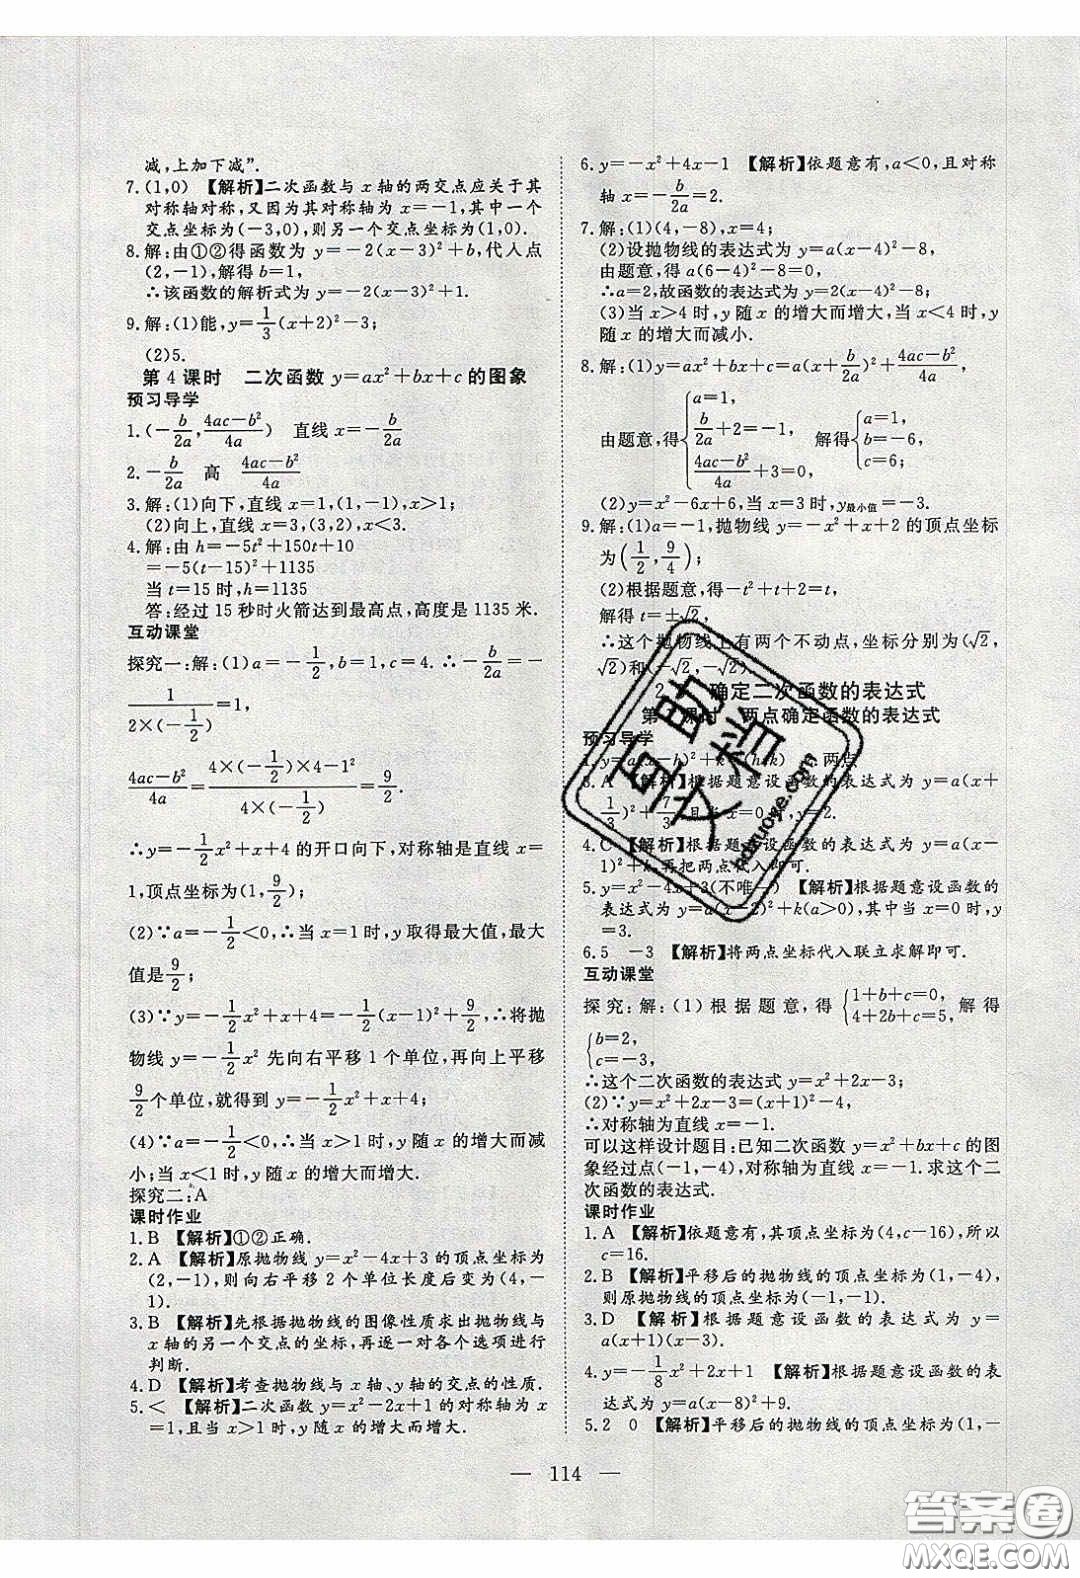 减,上加下减”.
7.(1,0) 【解析】二次函数与 x 轴的两交点应关于其
对称轴对称,又因为其对称轴为 x=-1,其中一个
交点坐标为(-3,0),则另一个交点坐标为(1,0).
8.解:由①②得函数为 y=-2(x-3)²+b,代入点
(2,-1),解得 b=1,
∴该函数的解析式为 y=-2(x-3)²+1.
9.解:(1)能,y=1/3(x+2)²-3;
(2)5.
第 4 课时 二次函数 y=ax²+bx+c 的图象
预习导学
1.(-b/2a,(4ac-b²)/4a) 直线 x=-b/2a
2.-b/2a 高 (4ac-b²)/4a
3.解:(1)向下,直线 x=1,(1,-1),x>1;
(2)向上,直线 x=3,(3,2),x<3.
4.解:由 h=-5t²+150t+10
=-5(t-15)²+1135
当 t=15 时,h=1135
答:经过 15 秒时火箭达到最高点,高度是 1135 米.
互动课堂
探究一:解:(1)a=-1/2,b=1,c=4.∴-b/2a=-
1/(2×(-1/2))=1,
(4ac-b²)/4a=(4×(-1/2)×4-1²)/(4×(-1/2))=9/2.
∴y=-1/2x²+x+4 的开口向下,对称轴是直线 x=
1,顶点坐标为(1,9/2).
(2)∵a=-1/2<0,∴当 x=1 时,y 取得最大值,最大
值是9/2;
(3)∵y=-1/2x²+x+4=-1/2(x-1)²+9/2,∴将抛
物线 y=-1/2x² 先向右平移 1 个单位,再向上平移
9/2个单位,就得到 y=-1/2x²+x+4;
(4)∵a=-1/2<0,∴当 x>1 时,y 随 x 的增大而减
小;当 x<1 时,y 随 x 的增大而增大.
探究二:A
课时作业
1.B 【解析】①②正确.
2.A 【解析】原抛物线 y=x²-4x+3 的顶点坐标为
(2,-1),则向右平移 2 个单位长度后变为(4,-
1).
3.B 【解析】先根据抛物线的图像性质求出抛物线与
x 轴的另一个交点的坐标,再逐一对各个选项进行
判断.
4.D 【解析】考查抛物线与 x 轴、y 轴的交点的性质.
5.< 【解析】二次函数 y=x²-2x+1 的对称轴为 x
=1,当 x>1 时,y 随 x 的增大而增大.
6.y=-x²+4x-1 【解析】依题意有,a<0,且对称
轴 x=-b/2a=2.
7.解:(1)(4,-8),x=4;
(2)设抛物线的表达式为 y=a(x-4)²-8,
由题意,得 a(6-4)²-8=0,
∴a=2,故函数的表达式为 y=2(x-4)²-8;
(3)当 x>4 时,y 随 x 的增大而增大,当 x<4 时,y
随 x 的增大而减小.
8.解:(1)y=ax²+bx+c=a(x+b/2a)²+(4ac-b²)/4a,
由题意,得{a=1, b/2a+2=-1, (4ac-b²)/4a+3=0, 解得{a=1, b=-6, c=6;
(2)y=x²-6x+6,当 x=3 时,y最小值=-3.
9.解:(1)a=-1,抛物线 y=-x²+x+2 的顶点坐标
为(1/2,9/4);
(2)根据题意,得-t²+t+2=t,
解得 t=±√2,
∴这个抛物线上有两个不动点,坐标分别为(√2,
√2)和(-√2,-√2).
确定二次函数的表达式
课时 两点确定函数的表达式
预习导学
两点
A 【解析】根据题意设函数的表达式为 y=a(x+
1/3)²+7/3,且当 x=0 y=2.
4.C 【解析】根据题意设函数的表达式为 y=a(x-
1)²+k,再把两点代入即可.
5.y=x²-4x+3(不唯一) 【解析】根据题意设函数的
表达式为 y=a(x-2)²+k(a>0),其中当 x=0 时,y
=3.
6.5 -3 【解析】将两点坐标代入联立求解即可.
互动课堂
探究:解:(1)根据题意,得{1+b+c=0, 4+2b+c=5, 解得
{b=2, c=-3,
∴这个二次函数的表达式 y=x²+2x-3;
(2)∵y=x²+2x-3=(x+1)²-4,
∴对称轴为直线 x=-1.
可以这样设计题目:已知二次函数 y=x²+bx+c 的图
象经过点(-1,-4),对称轴为直线 x=-1.求这个二
次函数的表达式.
课时作业
1.A 【解析】依题意有,其顶点坐标为(4,c-16),所以
c=16.
2.B 【解析】平移后的抛物线的顶点坐标为(1,-4),
则原抛物线的顶点坐标为(-1,-1).
3.D 【解析】根据题意设函数的表达式为 y=
a(x+1)(x-3).
4.y=-1/8x²+2x+1 【解析】根据题意设函数的表
达式为 y=a(x-8)²+9.
5.2 0 【解析】平移后的抛物线的顶点坐标为(1,-
— 114 —
互助文档
ndzuoye.com
答案圈
MXQE.COM